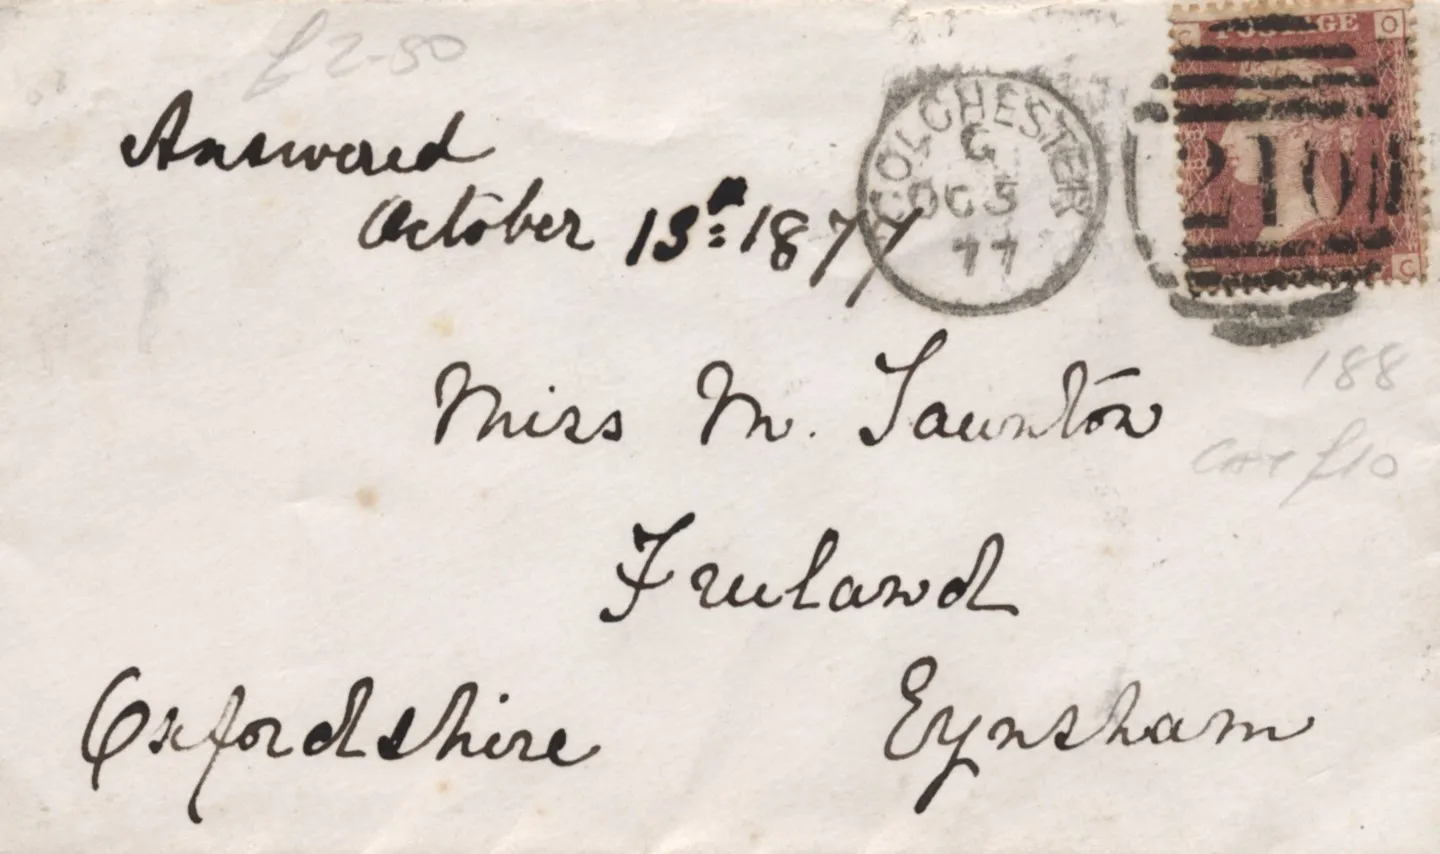 £2-50
Answered
October 13th 1877
COLCHESTER
G
OC 5
77
POSTAGE
C O
O C
210
188
cat £10
Miss M. Taunton
Freeland
Eynsham
Oxfordshire